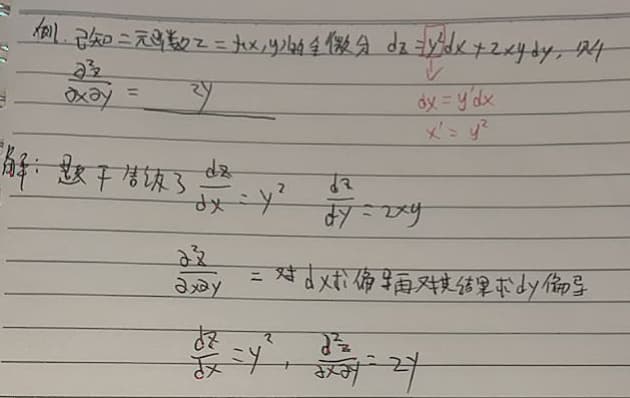 例.已知二元函数z=f(x,y)的全微分 dz=y²dx+2xydy,则
∂²z/∂x∂y = 2y
dy=y'dx
x'=y²
解:题干告诉了 dz/dx=y² dz/dy=2xy
∂²z/∂x∂y =对dx求偏导再对其结果求dy偏导
dz/dx=y², d²z/∂x∂y=2y